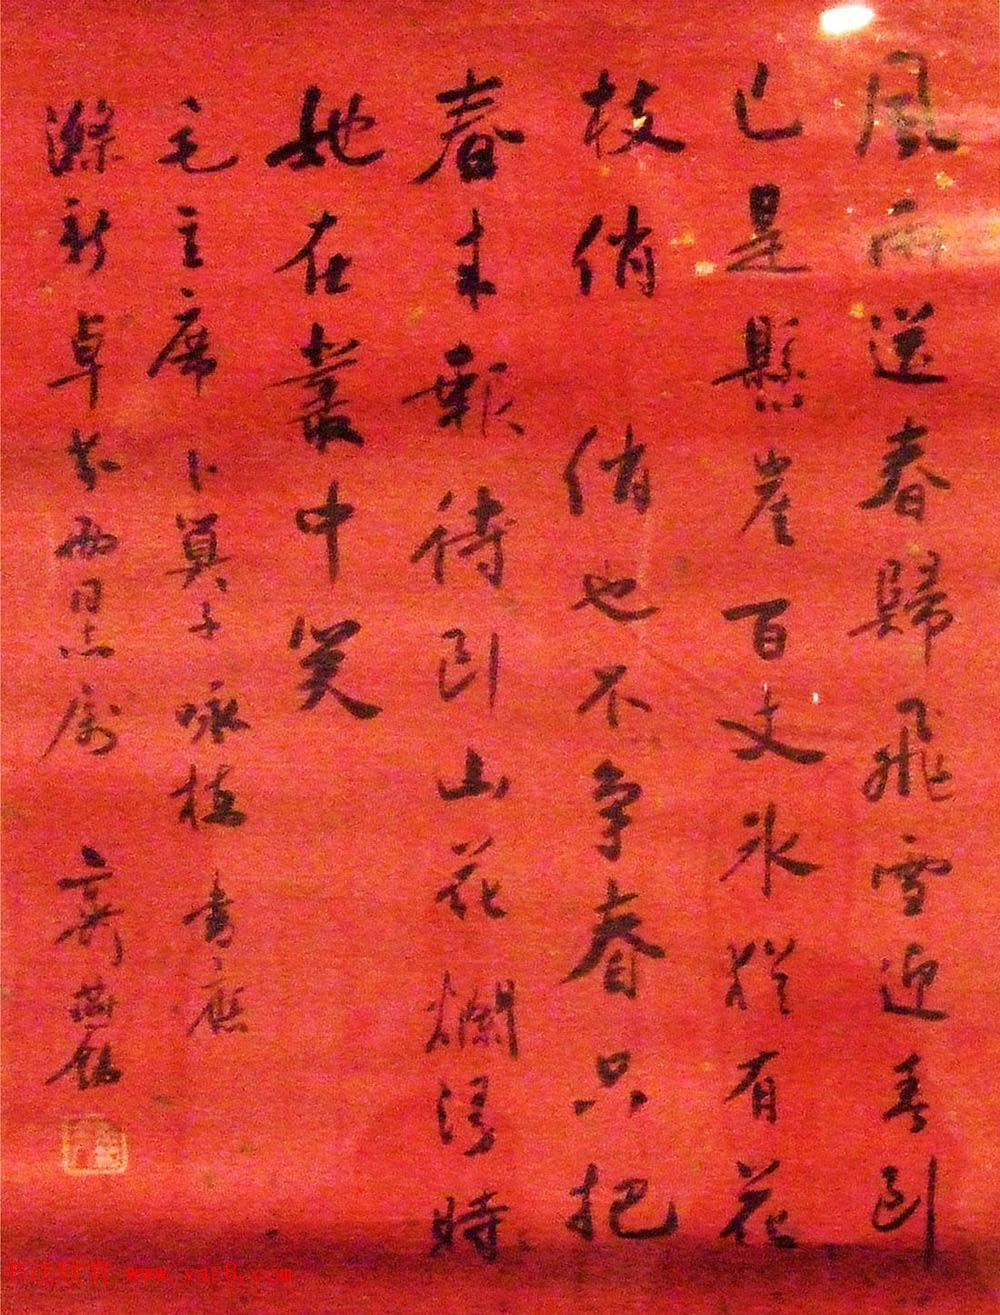 風雨送春歸飛雪迎春到
已是懸崖百丈冰猶有花
枝俏 俏也不争春只把
春来報待到山花爛漫時
她在叢中笑
毛主席卜算子咏梅 書應
滌新卓芬兩同志屬 齊燕銘
www.yac8.com